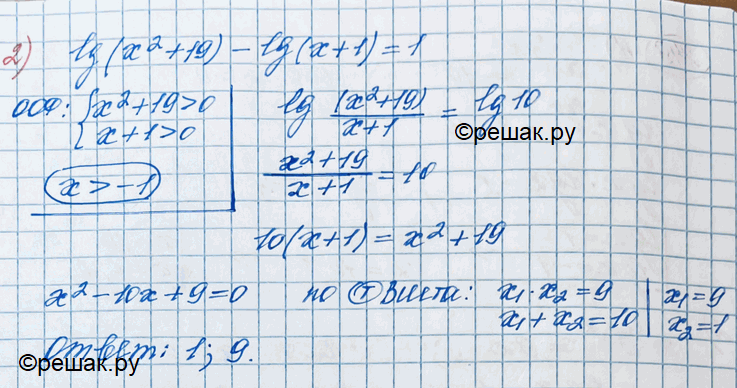 2) lg(x²+19) − lg(x+1) = 1
ООФ: { x²+19>0
x+1>0
x > −1
lg (x²+19)/(x+1) = lg 10
©решак.ру
(x²+19)/(x+1) = 10
10(x+1) = x²+19
x²−10x+9=0 по Т Виета: x₁·x₂=9 | x₁=9
x₁+x₂=10 | x₂=1
Ответ: 1; 9.
©решак.ру